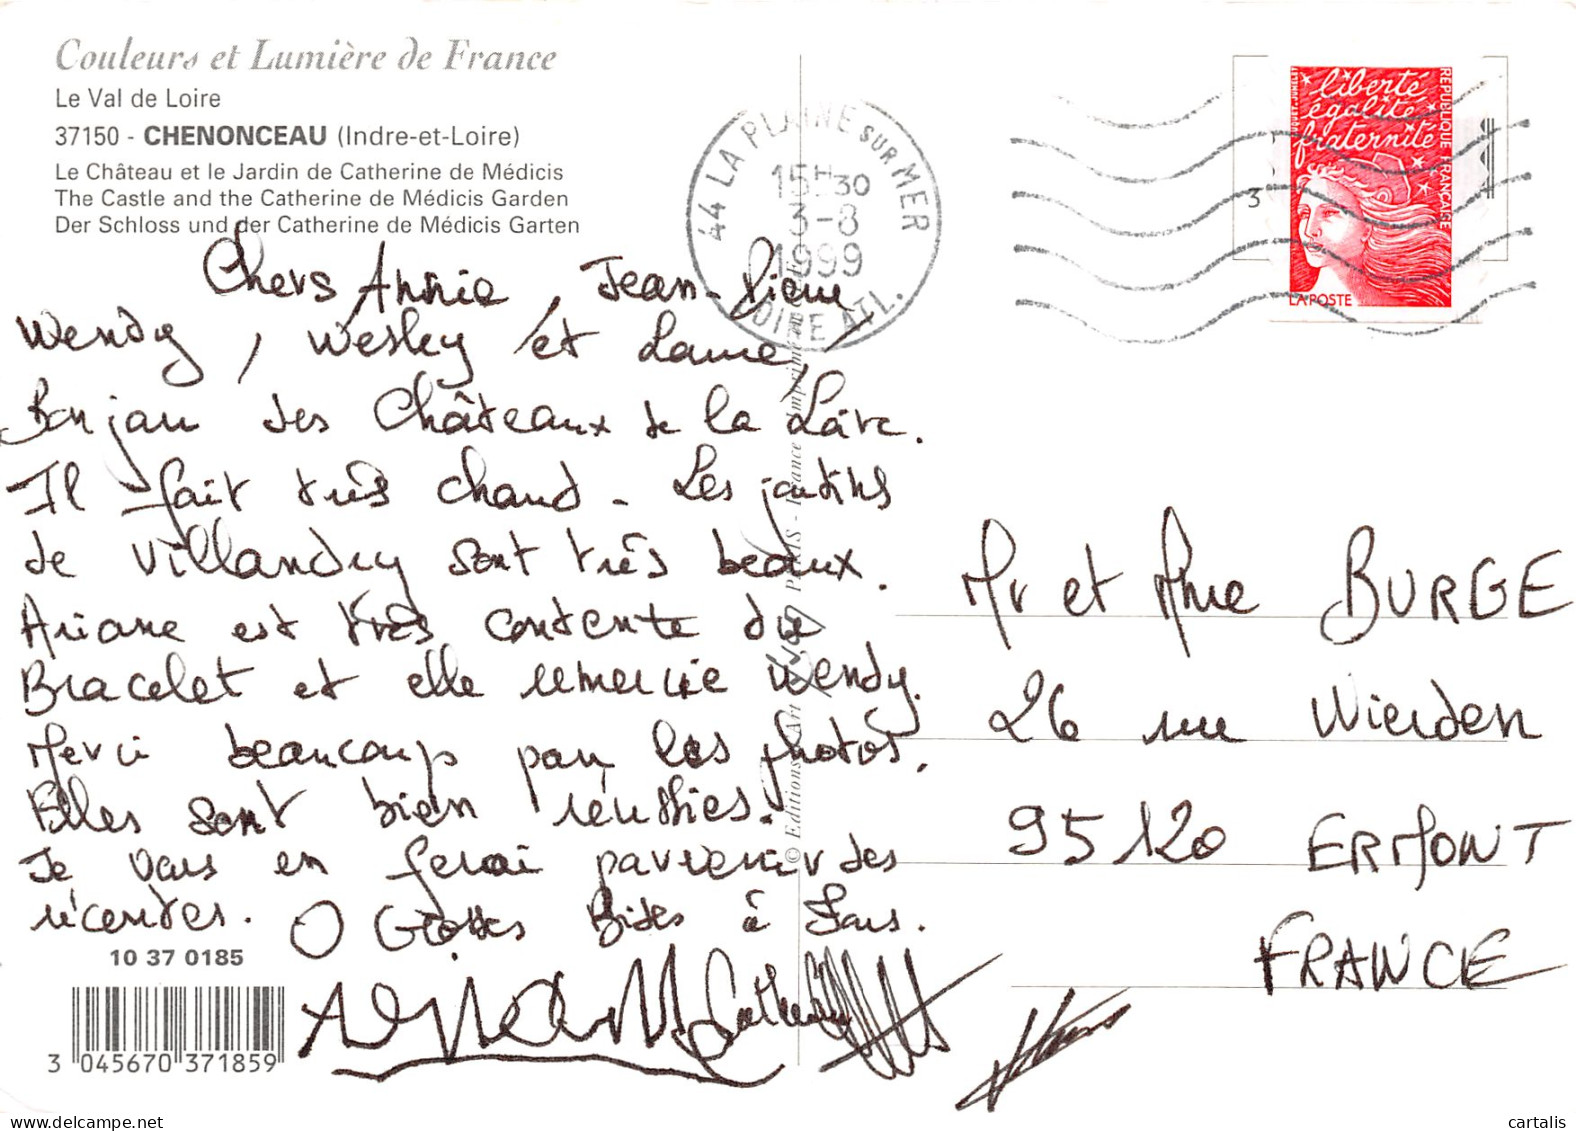 Couleurs et Lumière de France
Le Val de Loire
37150 - CHENONCEAU (Indre-et-Loire)
Le Château et le Jardin de Catherine de Médicis
The Castle and the Catherine de Médicis Garden
Der Schloss und der Catherine de Médicis Garten
44 LA PLAINE SUR MER
15H30
3-8
1999
LOIRE ATL.
liberté
égalité
fraternité
RÉPUBLIQUE FRANÇAISE
LA POSTE
3
Chers Annie, Jean-Pierre
Wendy, Wesley et Laure,
Bonjour des Châteaux de la Loire.
Il fait très chaud. Les jardins
de Villandry sont très beaux.
Ariane est très contente du
Bracelet et elle remercie Wendy.
Merci beaucoup pour les photos.
Elles sont bien réussies.
Je vous en ferai parvenir des
récentes. Grosses Bises à Tous.
Catherine
Mr et Mme BURGE
26 rue Wierden
95120 ERMONT
FRANCE
© Editions
PARIS - France Imprimé
10 37 0185
3 045670 371859
cartalis